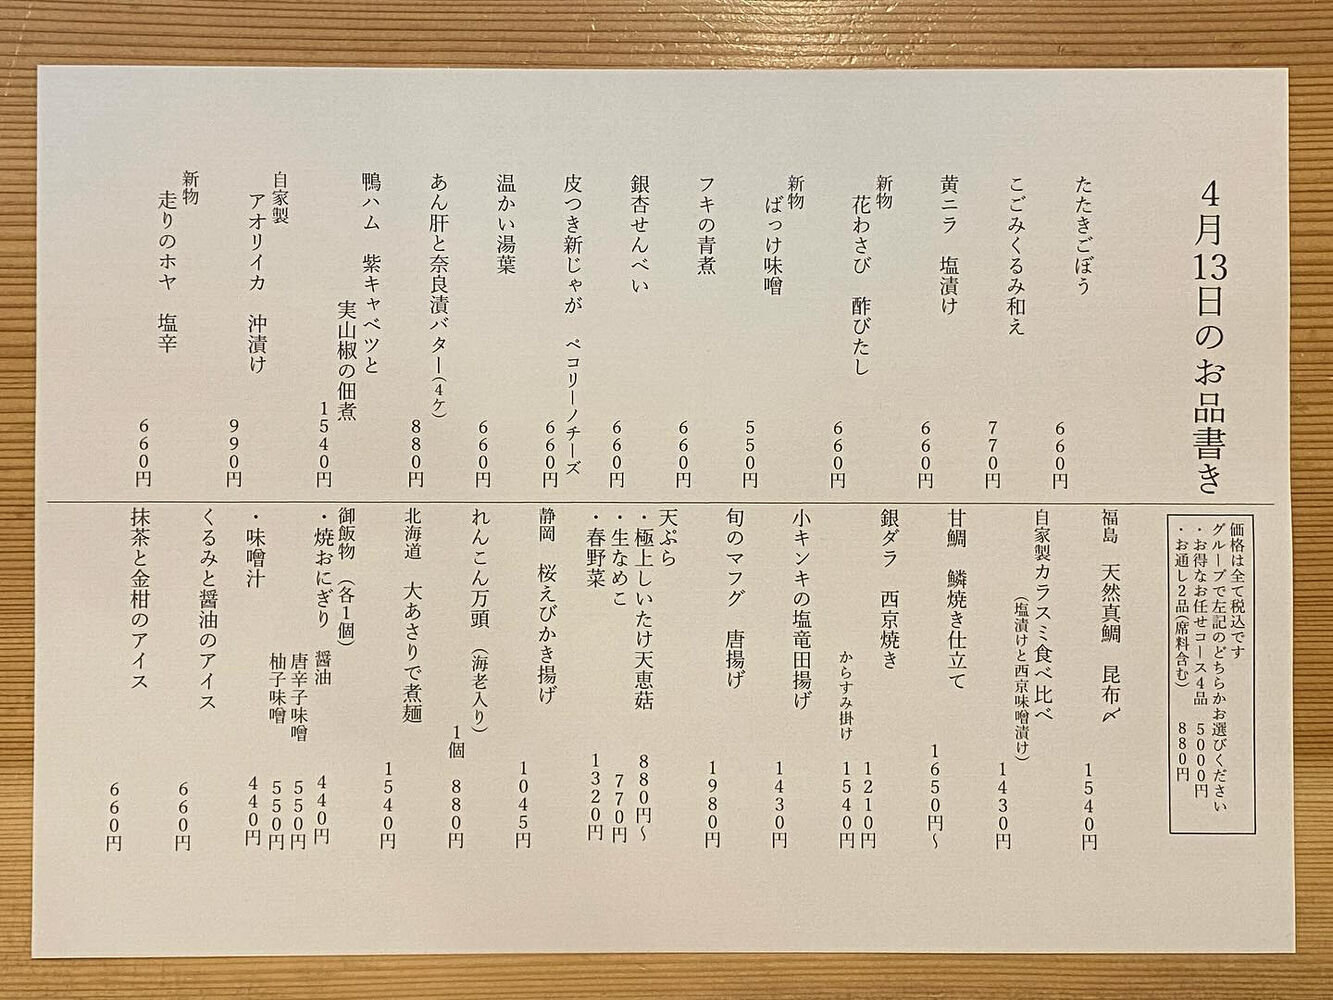 4月13日のお品書き
たたきごぼう 660円
こごみくるみ和え 770円
黄ニラ 塩漬け 660円
新物
花わさび 酢びたし 660円
新物
ばっけ味噌 550円
フキの青煮 660円
銀杏せんべい 660円
皮つき新じゃが ペコリーノチーズ 660円
温かい湯葉 660円
あん肝と奈良漬バター(4ケ) 880円
鴨ハム 紫キャベツと
実山椒の佃煮 1540円
自家製
アオリイカ 沖漬け 990円
新物
走りのホヤ 塩辛 660円
価格は全て税込です
グループで左記のどちらかお選びください
・お得なお任せコース4品 5000円
・お通し2品(席料含む) 880円
福島 天然真鯛 昆布〆 1540円
自家製カラスミ食べ比べ
(塩漬けと西京味噌漬け) 1430円
甘鯛 鱗焼き仕立て 1650円〜
銀ダラ 西京焼き 1210円
からすみ掛け 1540円
小キンキの塩竜田揚げ 1430円
旬のマフグ 唐揚げ 1980円
天ぷら
・極上しいたけ天恵菇 880円〜
・生なめこ 770円
・春野菜 1320円
静岡 桜えびかき揚げ 1045円
れんこん万頭 (海老入り) 1個 880円
北海道 大あさりで煮麺 1540円
御飯物 (各1個)
・焼おにぎり 醤油 440円
唐辛子味噌 550円
柚子味噌 550円
・味噌汁 440円
くるみと醤油のアイス 660円
抹茶と金柑のアイス 660円